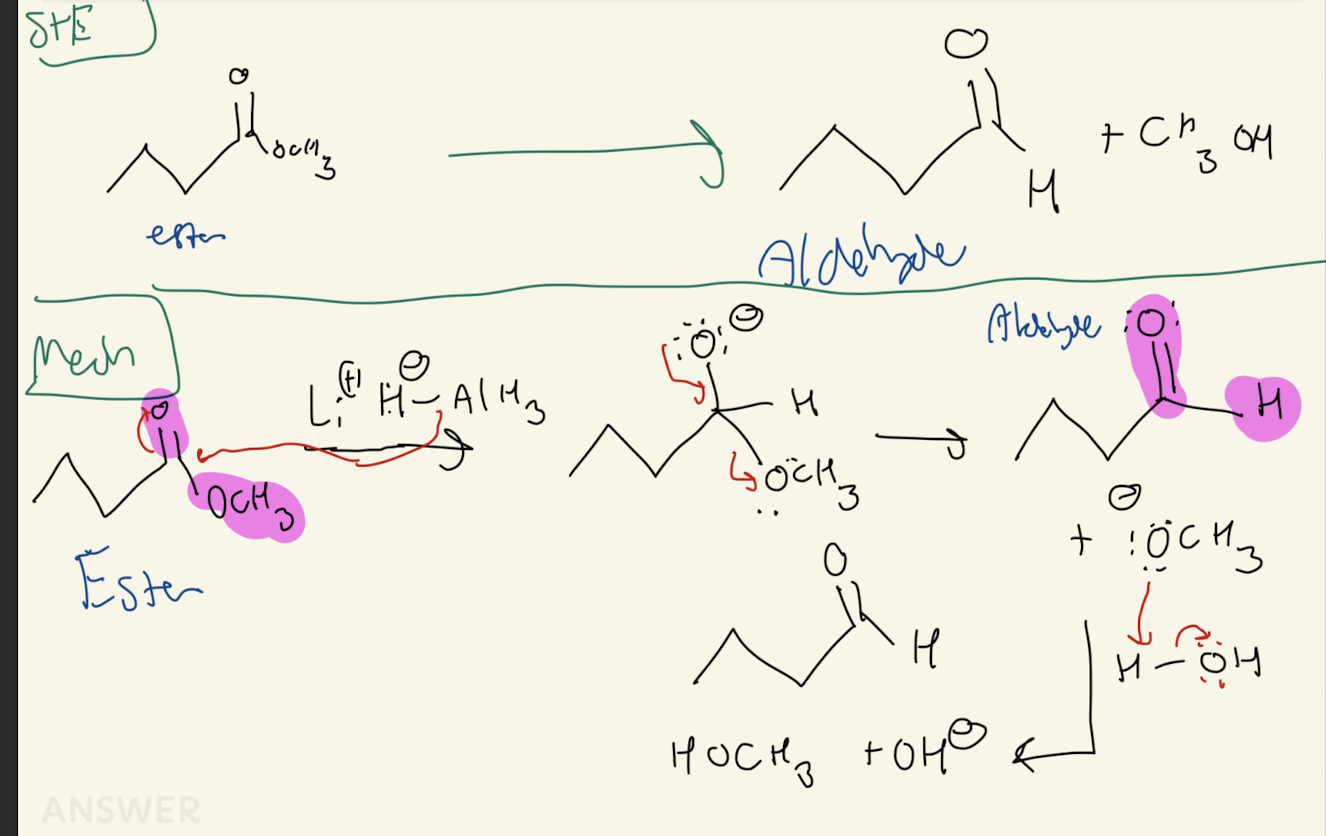 StE
O
O
OCH3
+ CH3OH
H
ester
Aldehyde
Mech
O
OCH3
Ester
Li(+) H⊖–AlH3
:Ö: ⊖
H
ÖCH3
Aldehyde
:O:
H
+ :ÖCH3 ⊖
H – ÖH
O
H
HOCH3 + OH⊖
ANSWER